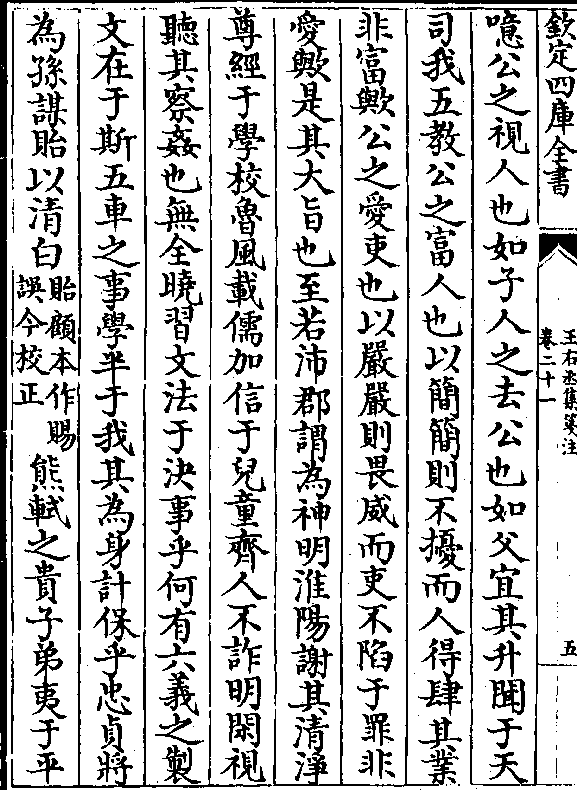 欽定四庫全書
王右丞集箋注
卷二十一
五
噫公之視人也如子人之去公也如父宜其升聞于天
司我五教公之富人也以簡簡則不擾而人得肆其業
非富歟公之愛吏也以嚴嚴則畏威而吏不陷于罪非
愛歟是其大旨也至若沛郡謂為神明淮陽謝其清淨
尊經于學校魯風載儒加信于兒童齊人不詐明閑視
聽其察姦也無全曉習文法于決事乎何有六義之製
文在于斯五車之事學半于我其為身計保乎忠貞將
為孫謀貽以清白貽顧本作賜誤今校正熊軾之貴子弟夷于平